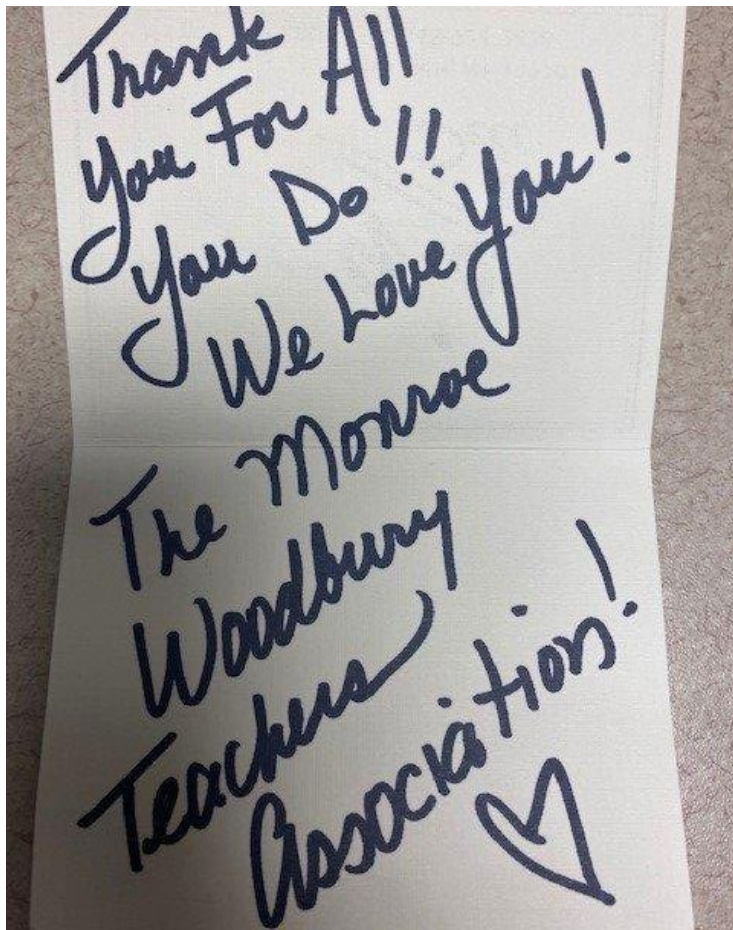 Thank
You For All
You Do!!
We Love You!
The Monroe
Woodbury
Teachers
Association!